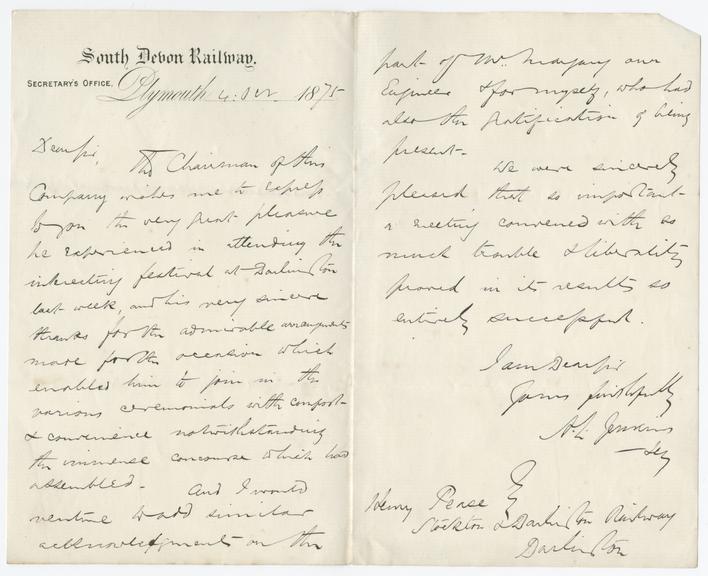 South Devon Railway.
SECRETARY'S OFFICE,
Plymouth 4 Oct. 1875
Dear Sir,
The Chairman of this
Company wishes me to express
to you the very great pleasure
he experienced in attending the
interesting festival at Darlington
last week, and his very sincere
thanks for the admirable arrangements
made for the occasion which
enabled him to join in the
various ceremonials with comfort
& convenience notwithstanding
the immense concourse which had
assembled. And I would
venture to add similar
acknowledgments on the
part of Mr. Margary our
Engineer & for myself, who had
also the gratification of being
present.
We were sincerely
pleased that so important
a meeting convened with so
much trouble & liberality
proved in its results so
entirely successful.
I am Dear Sir
Yours faithfully
Jenkins
Secy
Henry Pease Esq
Stockton & Darlington Railway
Darlington